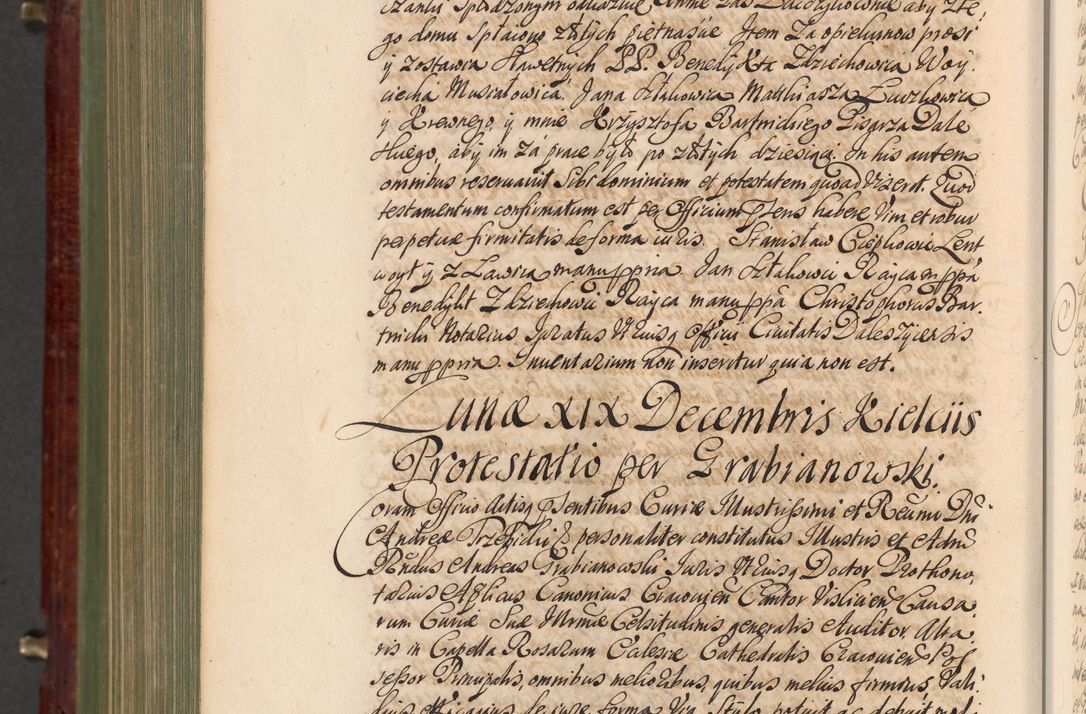 go domu spłacono złotych piętnaście Item Za opiekunow prosi
y zostawia Sławetnych PP. Benedykta Zdziechowica Woy-
ciecha Musiałowica. Jana Stahowica Matthiasza Zuczkowica
y Krewnego, y mnie Krzysztofa Bartnickiego Pisarza Dale
skiego, aby im za prace było po złotych dziesiąci. In his autem
omnibus reservavit Sibi dominium et potestatem quoad Vixerit. Quod
testamentum confirmatum est per Officium Psens habere Vim et robur
perpetuae firmitatis de forma iuris. Stanisław Lent
woyt y z Ławicą manu ppria Jan Stahowic Rayca m ppa
Benedykt Zdziechowic Rayca manu ppa Christophorus Bar-
tnicki Notarius Juratus Utriusq Officii Civitatis Daleszyciensis
manu ppria. Inventarium non inseritur quia non est.
Lunae XIX Decembris Kielciis
Protestatio per Grabianowski.
Coram Officio Actisq Psentibus Curiae Illustrissimi et Reumi Dni
Andreae Trzebicki personaliter constitutus Illustris et Adm
Rndus Andreas Grabianowski Juris Utriusq Doctor Prothono,
tarius Aplicus Canonicus Cracovien Cantor Vislicien Causa
rum Curiae Suae Celsitudinis generalis Auditor, Alta
ris in Capella Rosarum Ecclesiae Cathedralis Cracovien Pos
sessor Principalis, omnibus melioribus, quibus melius firmius Vali
dius efficacius de iure forma Via Stylo potuit ac debuit modi